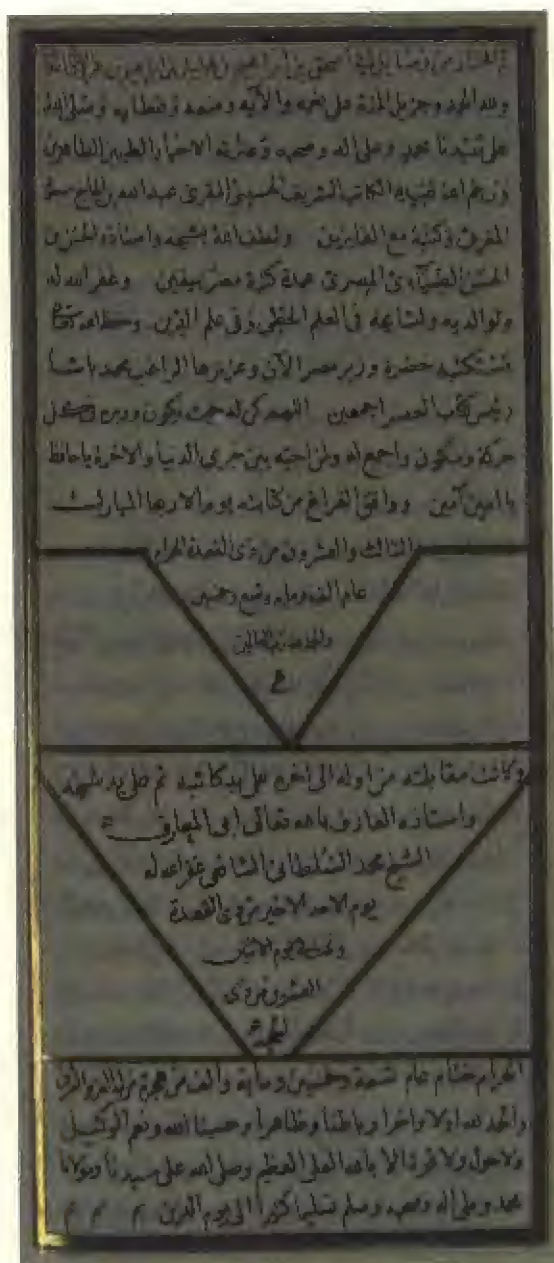 تم المختار من رسايل أبي اسحق بن ابراهيم بن
ولله الحمد وجزيل المنة على نعمه والآيه ومننه وعطايه وصلى الله
على سيدنا محمد وعلى اله وصحبه وعترته الاخيار الطيبين الطاهرين
ورحم الله الكاتب الشريف الحسيني المقرى عبد الله بن الحاج
في كتبة مع الفايزين ولطف الله بشيخه واستاذه الحسن بن
الحسن الضيآءى المصرى عمدة كتبة مصر بيقين وغفر الله له
ولوالديه ولمشايخه في العلم الخطى وفى علم الدين وحفظ الله
مستكتبه حضرة وزير مصر الآن وعزيزها الراغب محمد باشا
رئيس كتاب العصر اجمعين اللهم كن له حيث يكون ودبره في كل
حركة وسكون واجمع له ولمن احبه بين خيرى الدنيا والاخرة يا حافظ
يا امين آمين ووافق الفراغ من كتابته يوم الاربعا المبارك
الثالث والعشرون من ذى القعدة الحرام
عام الف ومايه وتسع وخمسين
والحمد لله رب العالمين
م
وكانت مقابلته من اوله الى اخره على يد كاتبه ثم على يد شيخه
واستاذه العارف بالله تعالى ابى المعارف
الشيخ محمد السلطانى الشافعى غفر الله له
يوم الاحد الاخير من ذى القعدة
يوم الاثنين
العشرون من ذى
الحجة
الحرام ختام عام تسعة وخمسين وماية والف من هجرة من له العز والشرف
والحمد لله اولا واخرا وباطنا وظاهرا وحسبنا الله ونعم الوكيل
ولا حول ولا قوة الا بالله العلى العظيم وصلى الله على سيدنا ومولانا
محمد وعلى اله وصحبه وسلم تسليما كثيرا الى يوم الدين م م م